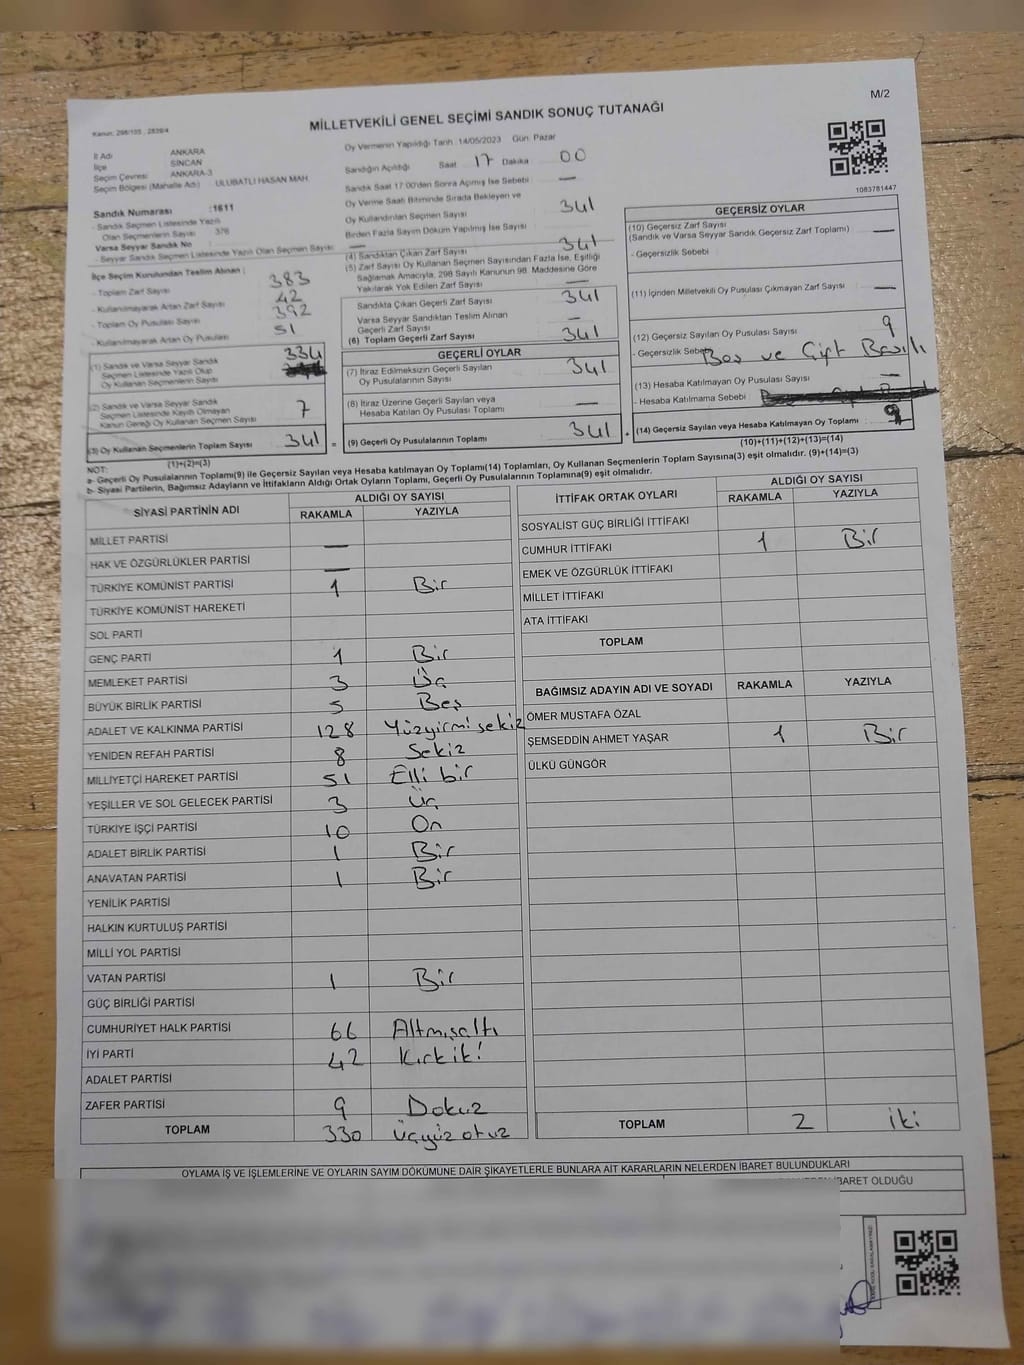 M/2
Kanun: 298/105 , 2839/4
MİLLETVEKİLİ GENEL SEÇİMİ SANDIK SONUÇ TUTANAĞI
İl Adı ANKARA
İlçe SİNCAN
Seçim Çevresi ANKARA-3
Seçim Bölgesi (Mahalle Adı) ULUBATLI HASAN MAH.
Sandık Numarası :1611
- Sandık Seçmen Listesinde Yazılı
Olan Seçmenlerin Sayısı 376
Varsa Seyyar Sandık No
- Seyyar Sandık Seçmen Listesinde Yazılı Olan Seçmen Sayısı : —
İlçe Seçim Kurulundan Teslim Alınan ;
- Toplam Zarf Sayısı 383
- Kullanılmayarak Artan Zarf Sayısı 42
- Toplam Oy Pusulası Sayısı 392
- Kullanılmayarak Artan Oy Pusulası 51
(1) Sandık ve Varsa Seyyar Sandık
Seçmen Listesinde Yazılı Olup
Oy Kullanan Seçmenlerin Sayısı 334
(2) Sandık ve Varsa Seyyar Sandık
Seçmen Listesinde Kayıtlı Olmayan
Kanun Gereği Oy Kullanan Seçmen Sayısı 7
(3) Oy Kullanan Seçmenlerin Toplam Sayısı 341 =
(1)+(2)=(3)
Oy Vermenin Yapıldığı Tarih :14/05/2023 Gün: Pazar
Sandığın Açıldığı Saat 17 Dakika 00
Sandık Saat 17:00'den Sonra Açılmış İse Sebebi : —
Oy Verme Saati Bitiminde Sırada Bekleyen ve
Oy Kullandırılan Seçmen Sayısı 341
Birden Fazla Sayım Döküm Yapılmış İse Sayısı
(4) Sandıktan Çıkan Zarf Sayısı 341
(5) Zarf Sayısı Oy Kullanan Seçmen Sayısından Fazla İse, Eşitliği
Sağlamak Amacıyla, 298 Sayılı Kanunun 98. Maddesine Göre
Yakılarak Yok Edilen Zarf Sayısı —
Sandıkta Çıkan Geçerli Zarf Sayısı 341
Varsa Seyyar Sandıktan Teslim Alınan
Geçerli Zarf Sayısı —
(6) Toplam Geçerli Zarf Sayısı 341
GEÇERLİ OYLAR
(7) İtiraz Edilmeksizin Geçerli Sayılan
Oy Pusulalarının Sayısı 341
(8) İtiraz Üzerine Geçerli Sayılan veya
Hesaba Katılan Oy Pusulası Toplamı —
(9) Geçerli Oy Pusulalarının Toplamı 341
1083781447
GEÇERSİZ OYLAR
(10) Geçersiz Zarf Sayısı
(Sandık ve Varsa Seyyar Sandık Geçersiz Zarf Toplamı) —
- Geçersizlik Sebebi
(11) İçinden Milletvekili Oy Pusulası Çıkmayan Zarf Sayısı —
(12) Geçersiz Sayılan Oy Pusulası Sayısı 9
- Geçersizlik Sebebi Boş ve Çift Basılı
(13) Hesaba Katılmayan Oy Pusulası Sayısı —
- Hesaba Katılmama Sebebi
(14) Geçersiz Sayılan veya Hesaba Katılmayan Oy Toplamı 9
(10)+(11)+(12)+(13)=(14)
NOT:
a- Geçerli Oy Pusulalarının Toplamı(9) ile Geçersiz Sayılan veya Hesaba katılmayan Oy Toplamı(14) Toplamları, Oy Kullanan Seçmenlerin Toplam Sayısına(3) eşit olmalıdır. (9)+(14)=(3)
b- Siyasi Partilerin, Bağımsız Adayların ve İttifakların Aldığı Ortak Oyların Toplamı, Geçerli Oy Pusulalarının Toplamına(9) eşit olmalıdır.
SİYASİ PARTİNİN ADI ALDIĞI OY SAYISI
RAKAMLA YAZIYLA
MİLLET PARTİSİ —
HAK VE ÖZGÜRLÜKLER PARTİSİ —
TÜRKİYE KOMÜNİST PARTİSİ 1 Bir
TÜRKİYE KOMÜNİST HAREKETİ
SOL PARTİ
GENÇ PARTİ 1 Bir
MEMLEKET PARTİSİ 3 Üç
BÜYÜK BİRLİK PARTİSİ 5 Beş
ADALET VE KALKINMA PARTİSİ 128 Yüzyirmi sekiz
YENİDEN REFAH PARTİSİ 8 Sekiz
MİLLİYETÇİ HAREKET PARTİSİ 51 Elli bir
YEŞİLLER VE SOL GELECEK PARTİSİ 3 Üç
TÜRKİYE İŞÇİ PARTİSİ 10 On
ADALET BİRLİK PARTİSİ 1 Bir
ANAVATAN PARTİSİ 1 Bir
YENİLİK PARTİSİ
HALKIN KURTULUŞ PARTİSİ
MİLLİ YOL PARTİSİ
VATAN PARTİSİ 1 Bir
GÜÇ BİRLİĞİ PARTİSİ
CUMHURİYET HALK PARTİSİ 66 Altmışaltı
İYİ PARTİ 42 Kırk iki
ADALET PARTİSİ
ZAFER PARTİSİ 9 Dokuz
TOPLAM 330 üçyüz otuz
İTTİFAK ORTAK OYLARI ALDIĞI OY SAYISI
RAKAMLA YAZIYLA
SOSYALİST GÜÇ BİRLİĞİ İTTİFAKI
CUMHUR İTTİFAKI 1 Bir
EMEK VE ÖZGÜRLÜK İTTİFAKI
MİLLET İTTİFAKI
ATA İTTİFAKI
TOPLAM
BAĞIMSIZ ADAYIN ADI VE SOYADI RAKAMLA YAZIYLA
ÖMER MUSTAFA ÖZAL
ŞEMSEDDİN AHMET YAŞAR 1 Bir
ÜLKÜ GÜNGÖR
TOPLAM 2 iki
OYLAMA İŞ VE İŞLEMLERİNE VE OYLARIN SAYIM DÖKÜMÜNE DAİR ŞİKAYETLERLE BUNLARA AİT KARARLARIN NELERDEN İBARET BULUNDUKLARI
İBARET OLDUĞU